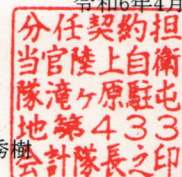 令和6年4月
分任契約担
当官陸上自衛
隊滝ヶ原駐屯
地第433
会計隊長之印
秀樹